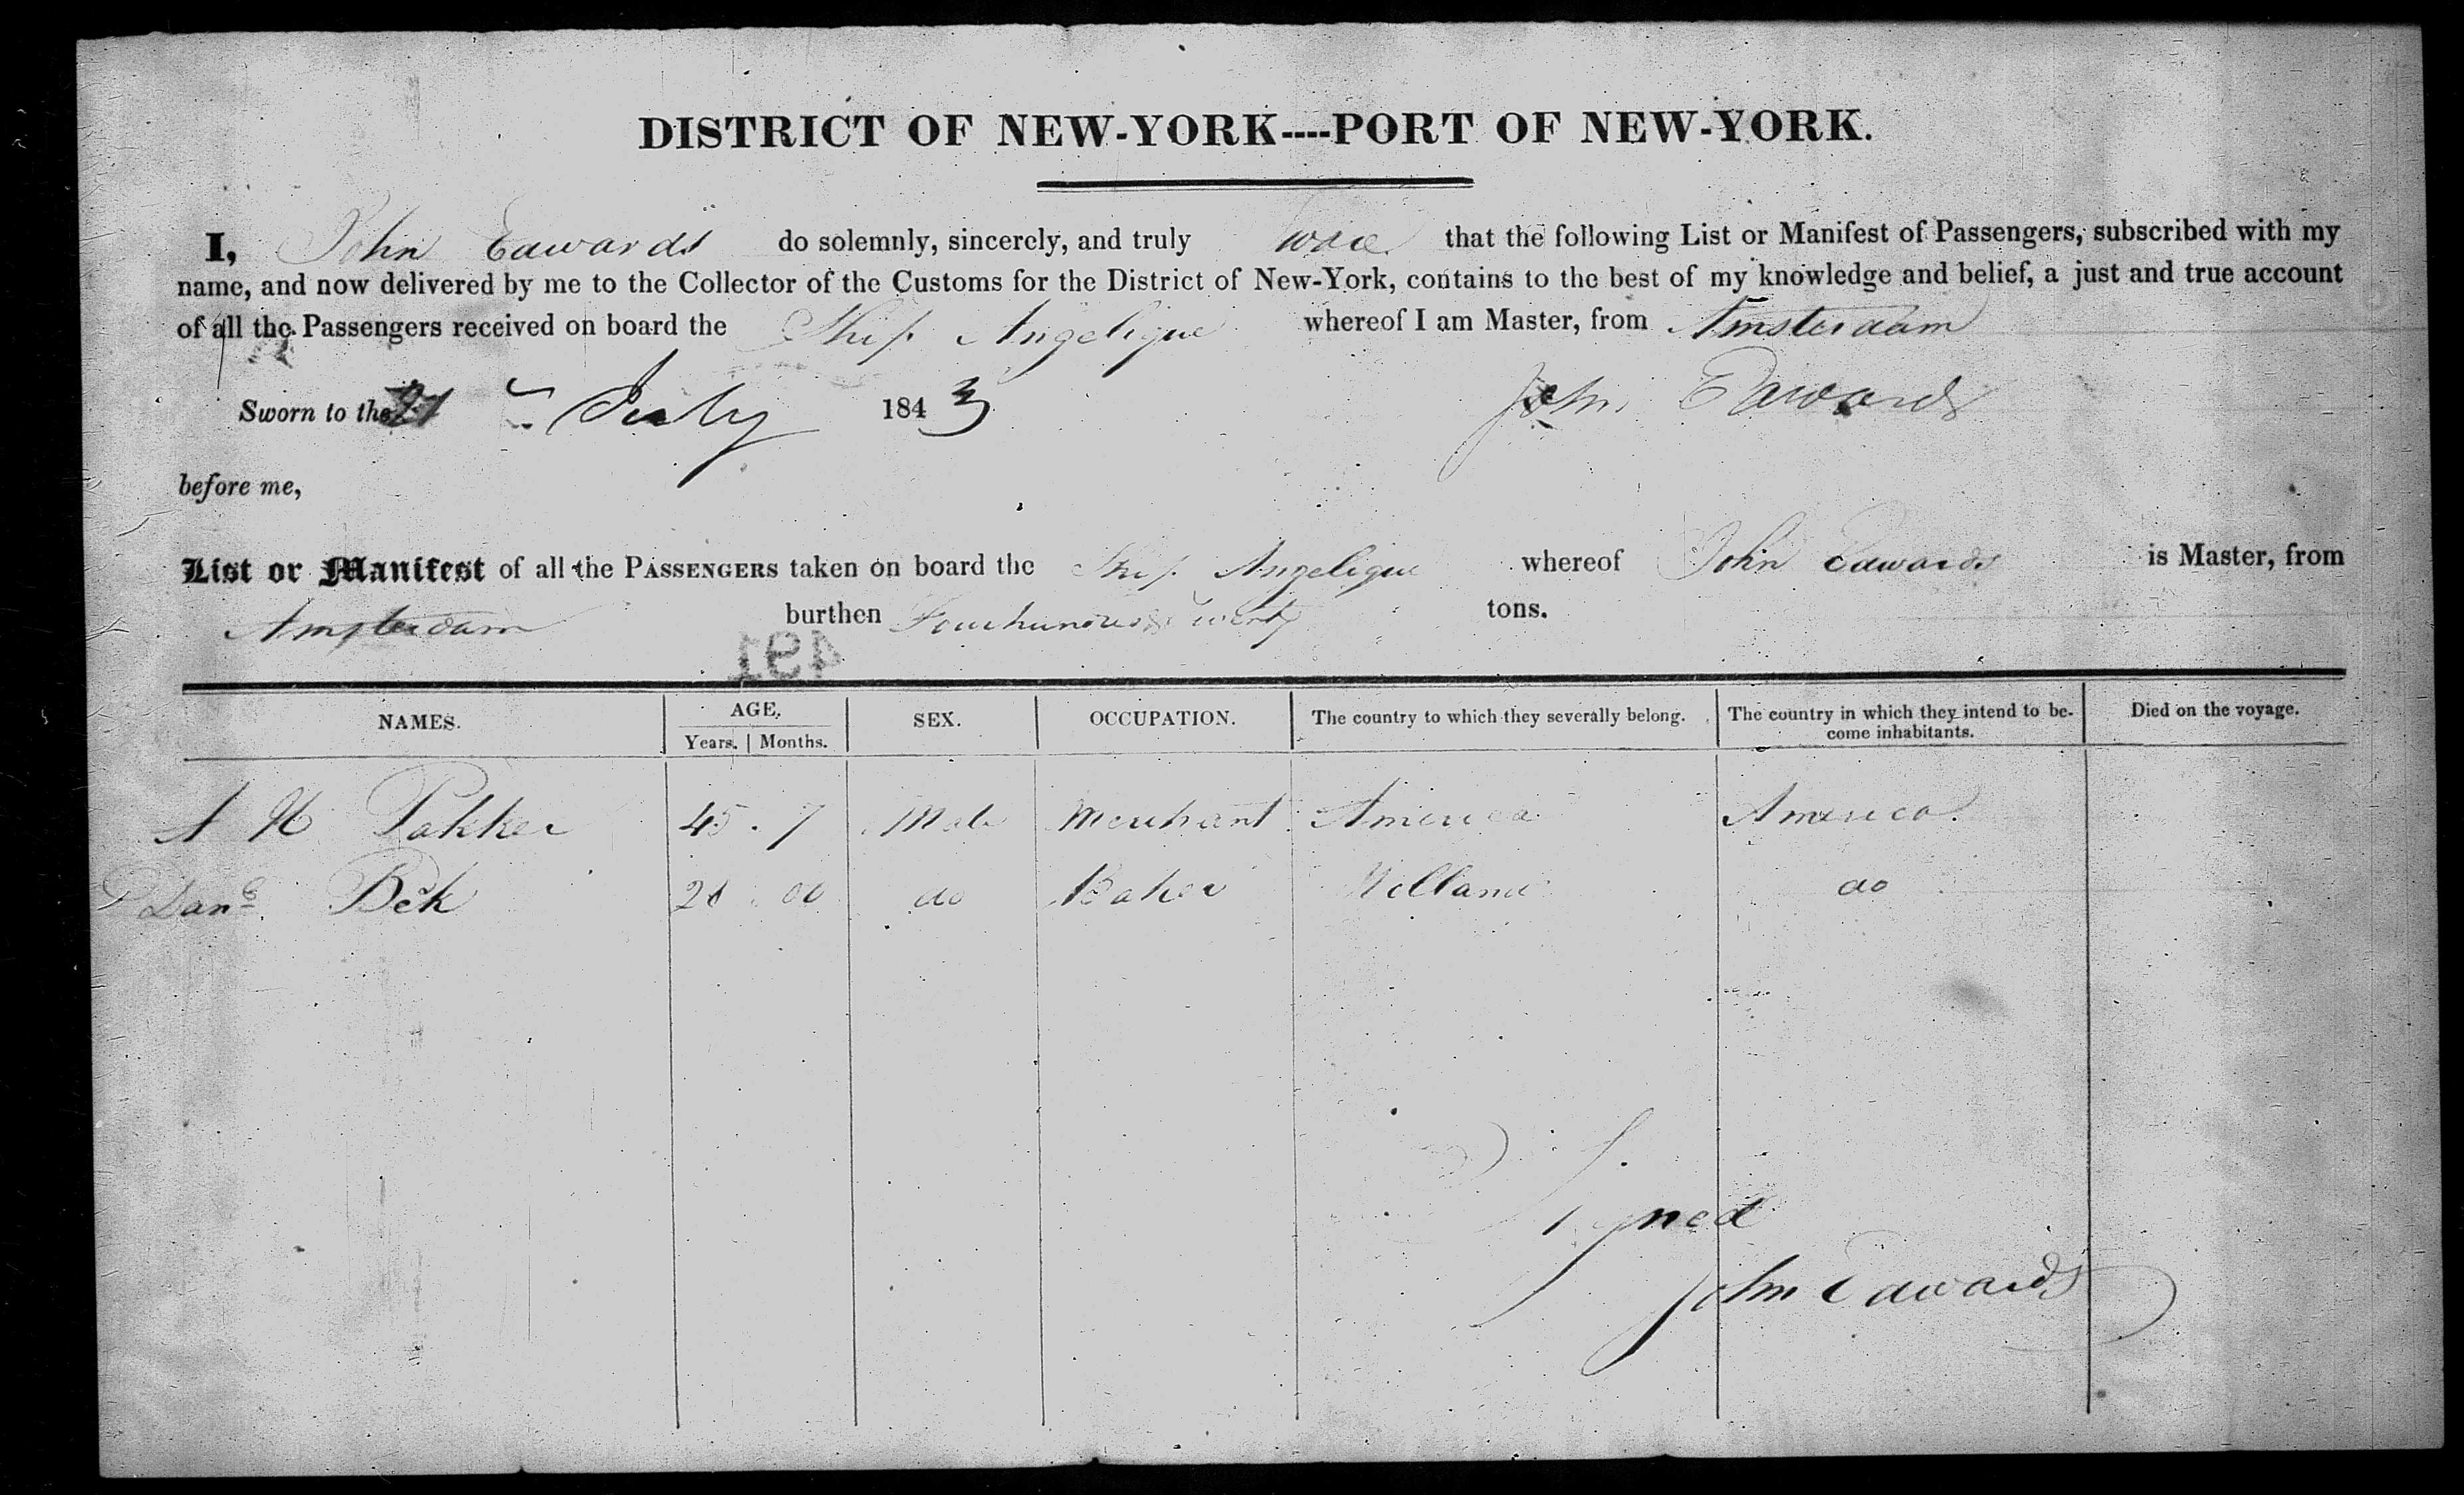 DISTRICT OF NEW-YORK----PORT OF NEW-YORK.
I, John Edwards do solemnly, sincerely, and truly that the following List or Manifest of Passengers, subscribed with my
name, and now delivered by me to the Collector of the Customs for the District of New-York, contains to the best of my knowledge and belief, a just and true account
of all the Passengers received on board the Ship Angelique whereof I am Master, from Amsterdam
Sworn to the 21 July 1843 John Edwards
before me,
List or Manifest of all the PASSENGERS taken on board the Ship Angelique whereof John Edwards is Master, from
Amsterdam burthen Four hundred & Twenty tons.
491
NAMES. AGE. SEX. OCCUPATION. The country to which they severally belong. The country in which they intend to be-
Years. Months. come inhabitants. Died on the voyage.
A H Pakker 45 . 7 Male Merchant America America
Bek 00 do Baker Holland do
Signed
John Edwards